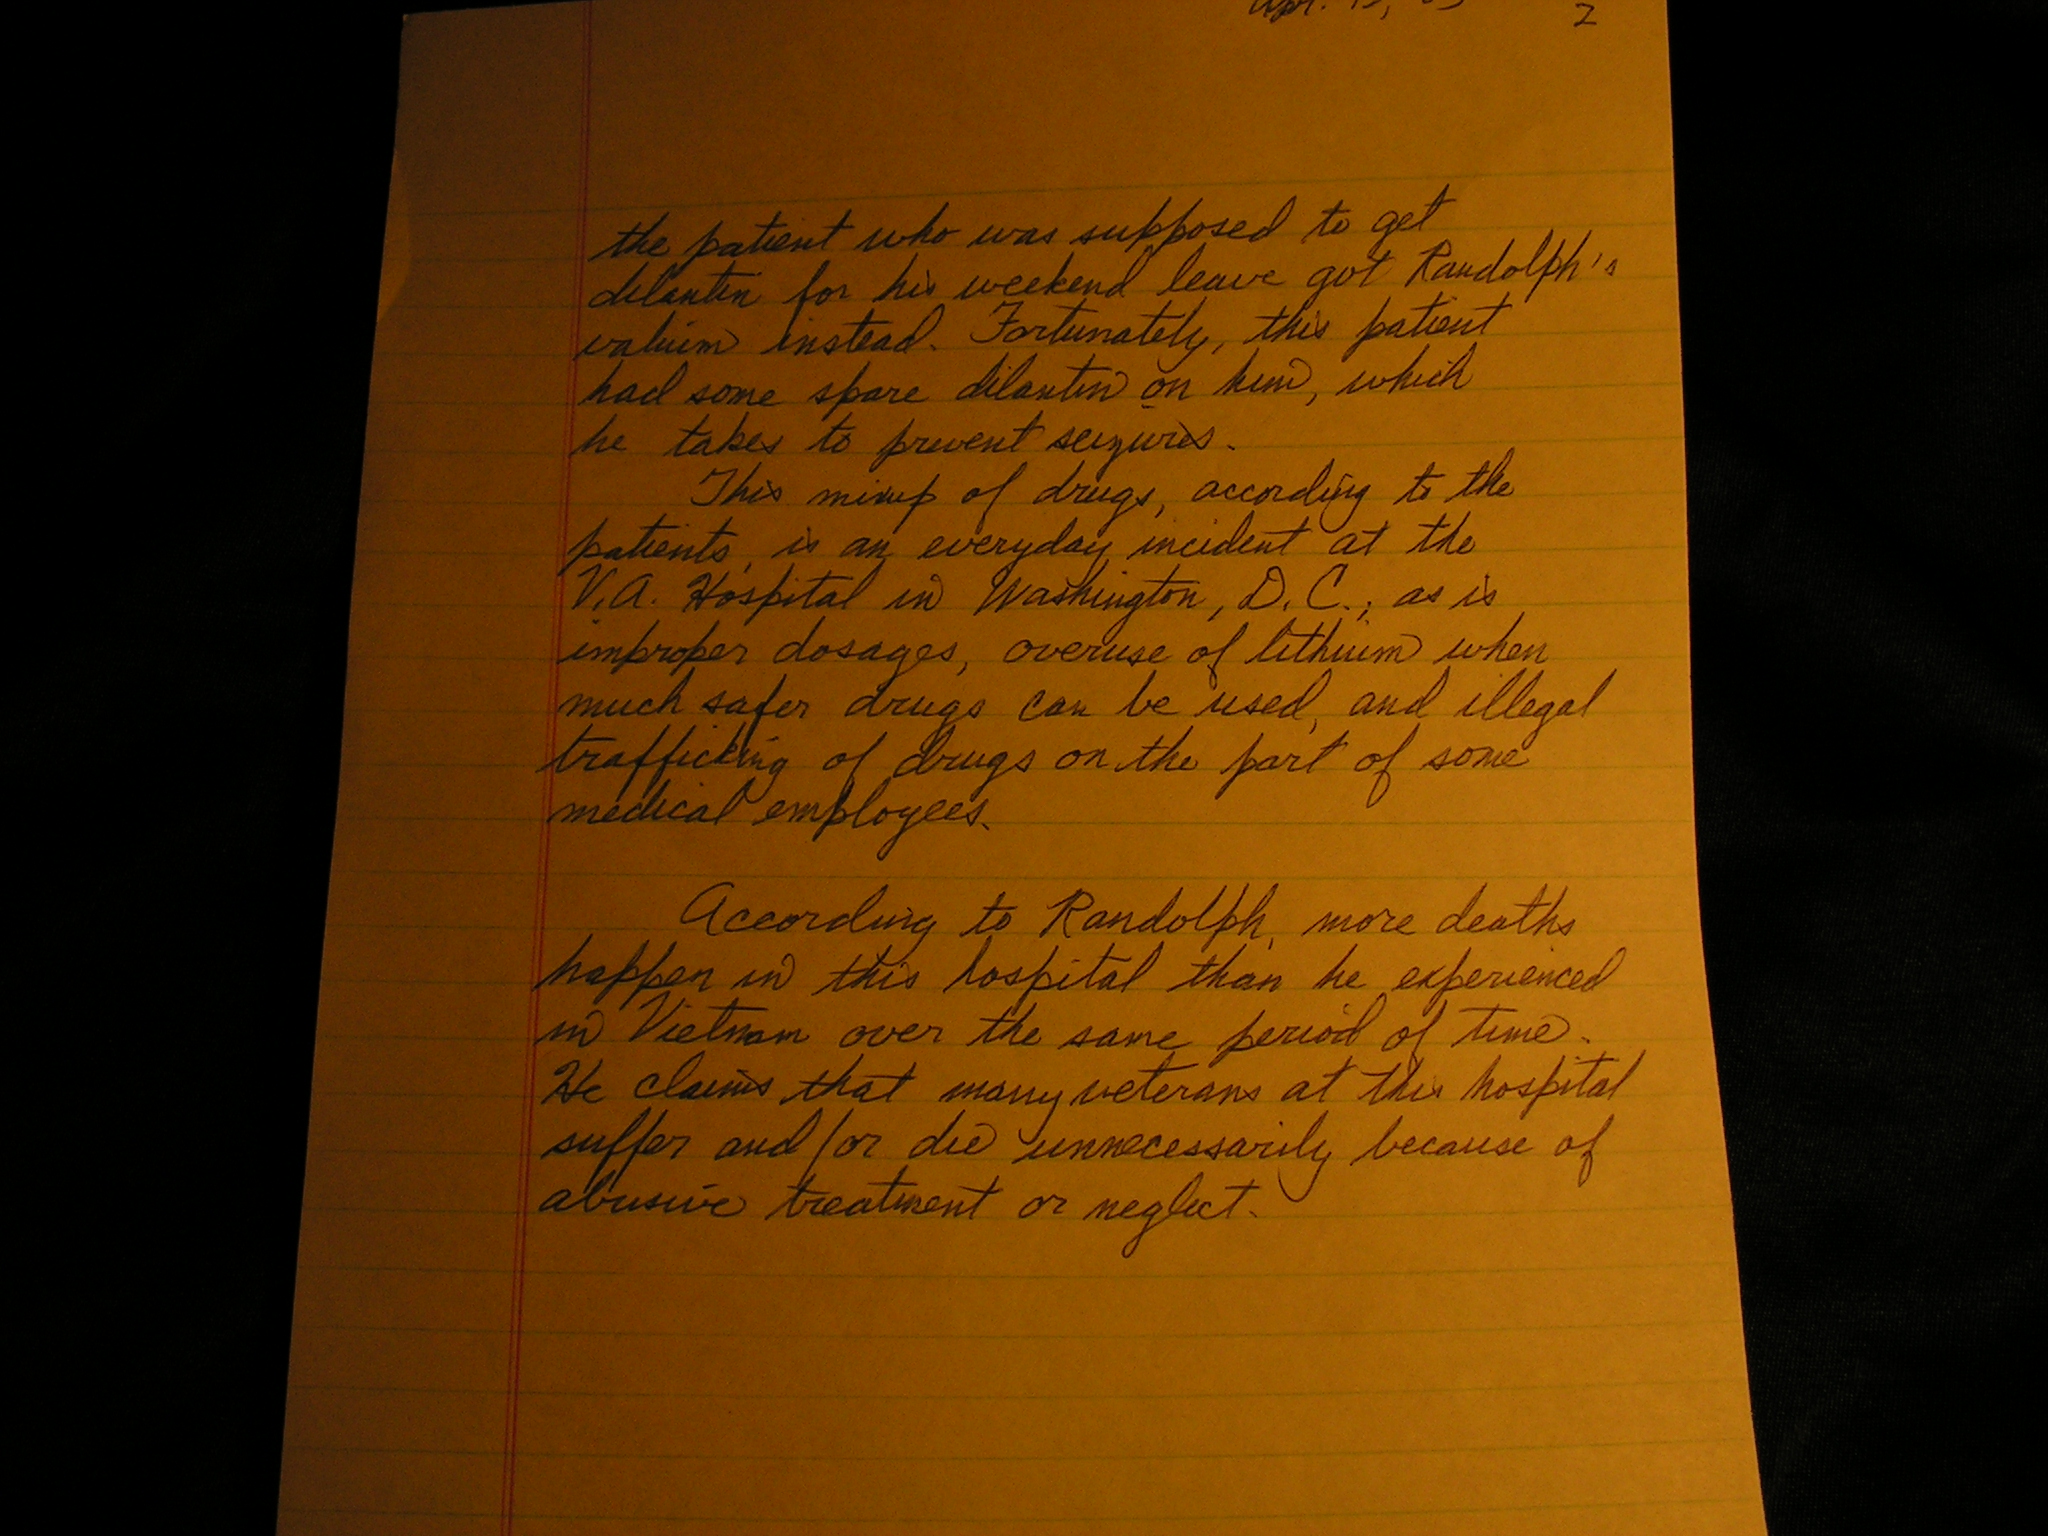 Apr. 2
the patient who was supposed to get
dilantin for his weekend leave got Randolph's
valium instead. Fortunately, this patient
had some spare dilantin on him, which
he takes to prevent seizures.
This mixup of drugs, according to the
patients, is an everyday incident at the
V.A. Hospital in Washington, D.C., as is
improper dosages, overuse of lithium when
much safer drugs can be used, and illegal
trafficking of drugs on the part of some
medical employees.
According to Randolph, more deaths
happen in this hospital than he experienced
in Vietnam over the same period of time.
He claims that many veterans at this hospital
suffer and/or die unnecessarily because of
abusive treatment or neglect.